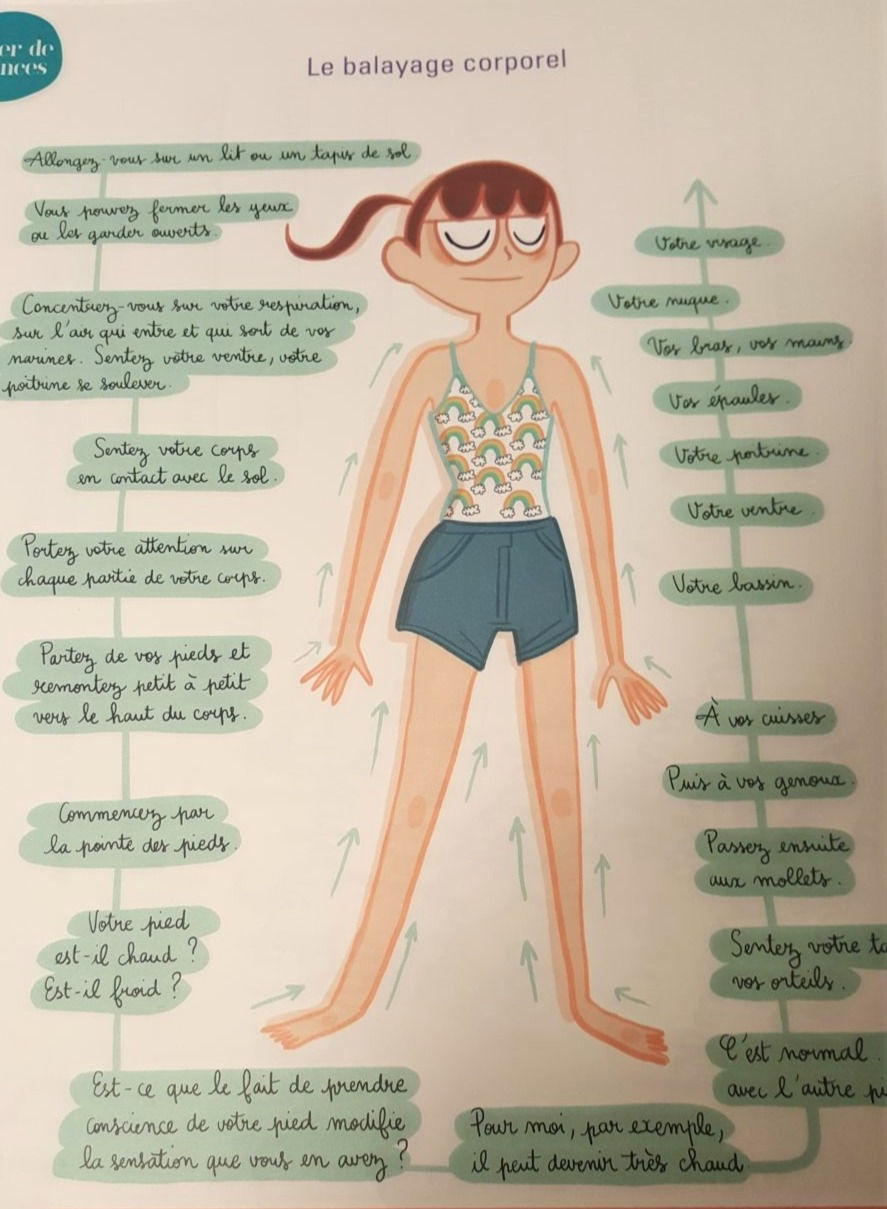 er de
nces
Le balayage corporel
Allongez-vous sur un lit ou un tapis de sol
Vous pouvez fermer les yeux
ou les garder ouverts.
Concentrez-vous sur votre respiration,
sur l'air qui entre et qui sort de vos
narines. Sentez votre ventre, votre
poitrine se soulever.
Sentez votre corps
en contact avec le sol.
Portez votre attention sur
chaque partie de votre corps.
Partez de vos pieds et
remontez petit à petit
vers le haut du corps.
Commencez par
la pointe des pieds.
Votre pied
est-il chaud ?
Est-il froid ?
Est-ce que le fait de prendre
conscience de votre pied modifie
la sensation que vous en avez ?
Pour moi, par exemple,
il peut devenir très chaud
C'est normal.
avec l'autre pi
Sentez votre ta
vos orteils.
Passez ensuite
aux mollets.
Puis à vos genoux.
À vos cuisses
Votre bassin.
Votre ventre.
Votre poitrine.
Vos épaules.
Vos bras, vos mains.
Votre nuque.
Votre visage.